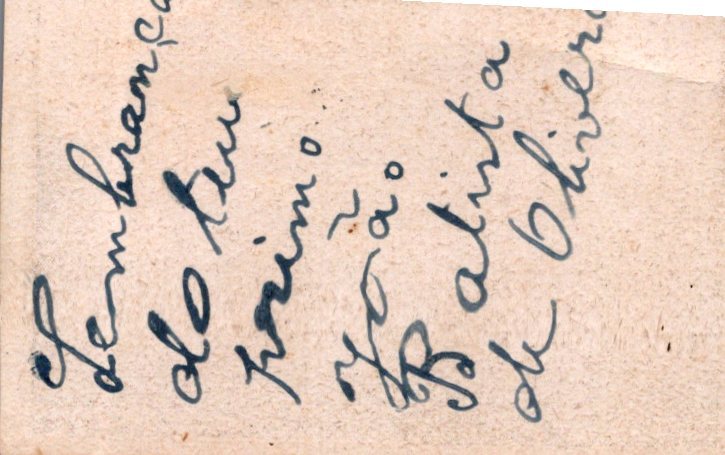 Lembrança
do teu
primo
João
Batista
de Olivera